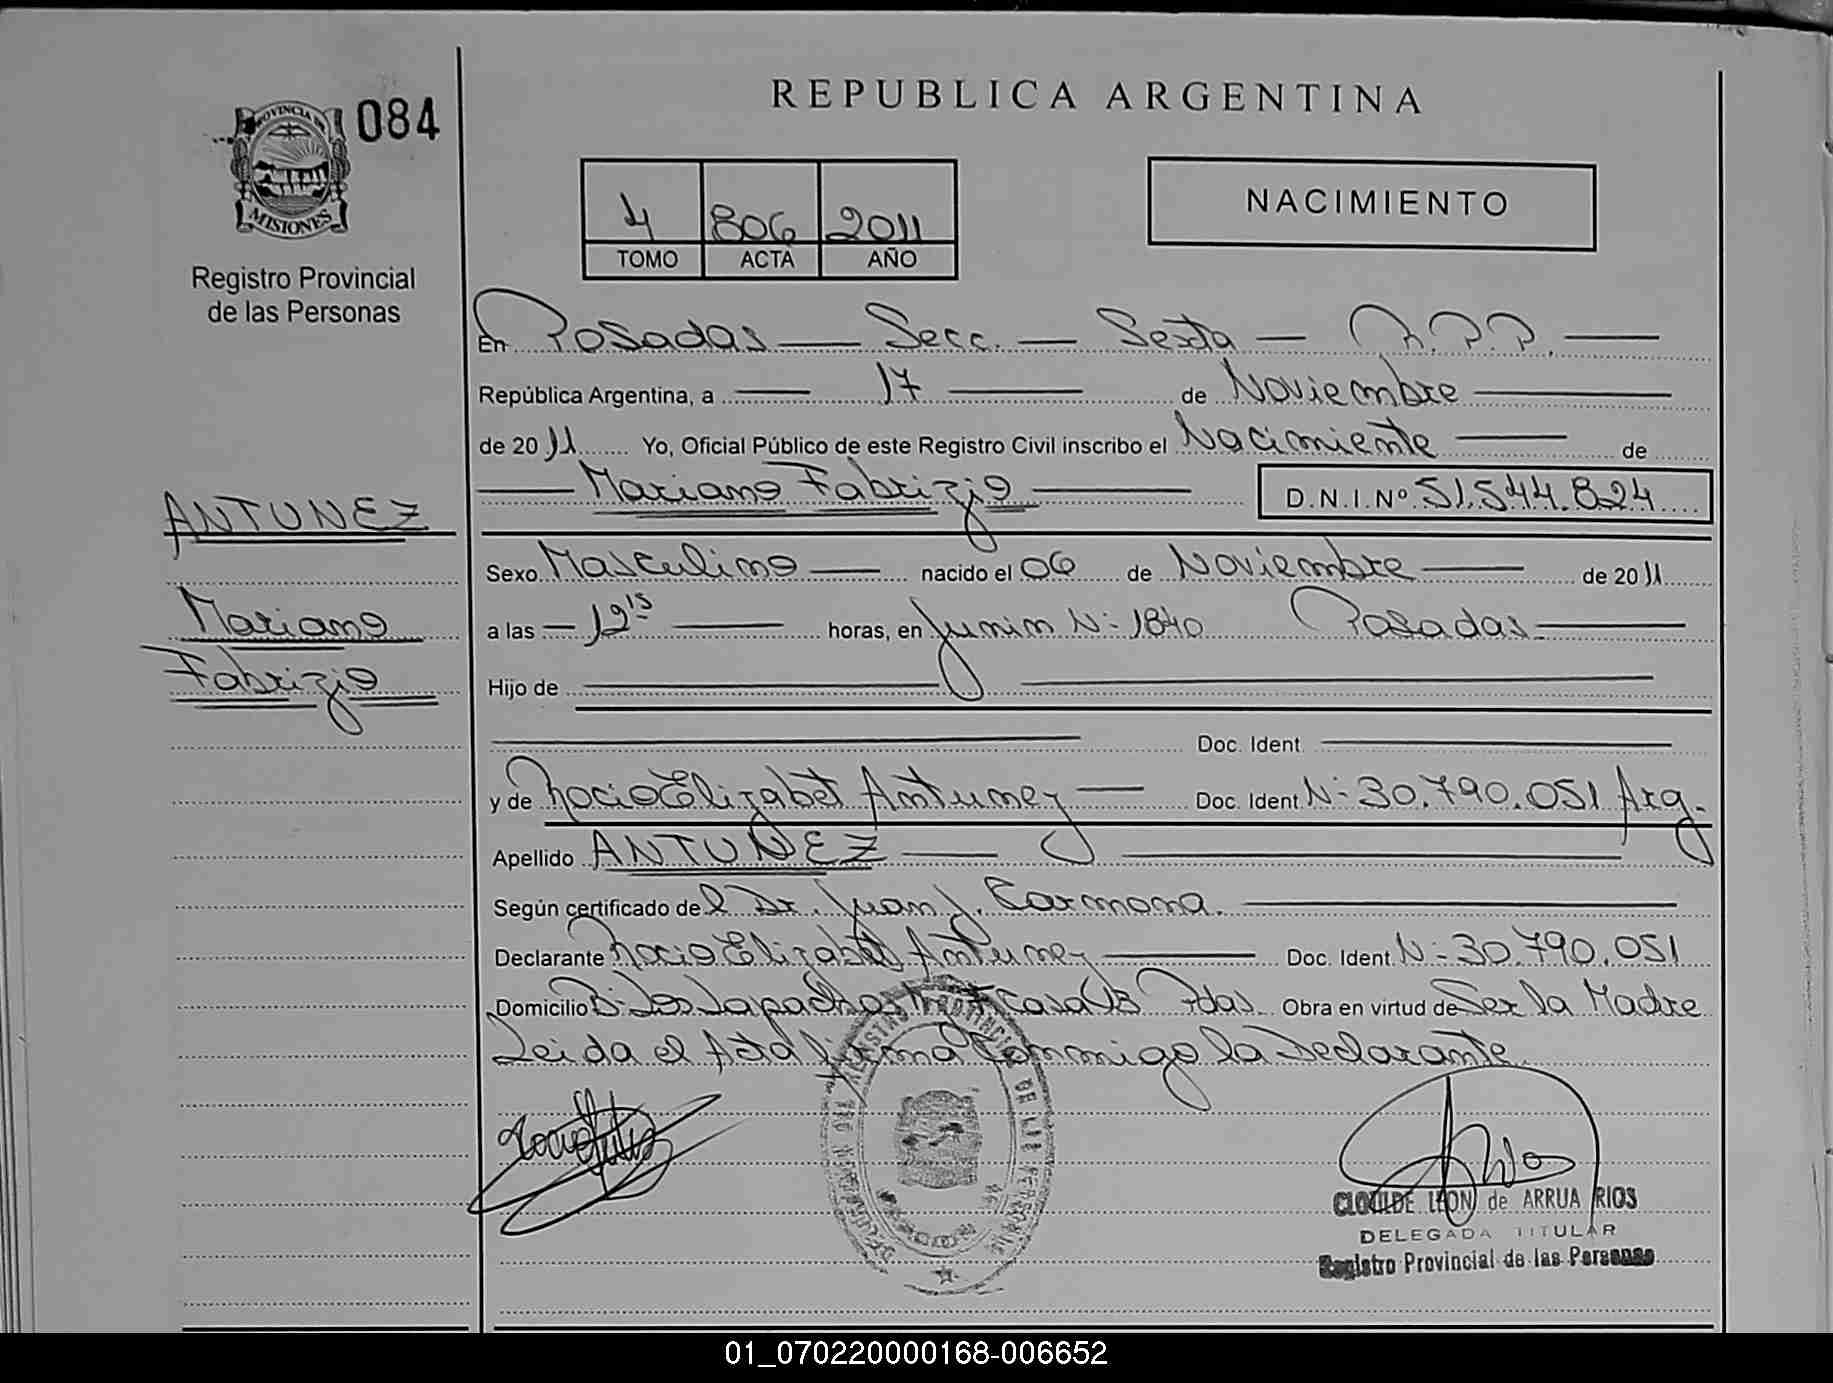 REPUBLICA ARGENTINA
PROVINCIA DE
MISIONES
084
Registro Provincial
de las Personas
4 806 2011
TOMO ACTA AÑO
NACIMIENTO
En Posadas — Secc. — Sexta — R.P.P. —
República Argentina, a — 17 — de Noviembre —
de 2011 Yo, Oficial Público de este Registro Civil inscribo el Nacimiento — de
— Mariano Fabrizio — D.N.I.Nº 51.544.824
ANTUNEZ
Mariano
Fabrizio
Sexo Masculino — nacido el 06 de Noviembre — de 2011
a las — 12¹⁵ — horas, en Junin Nº 1840 Posadas —
Hijo de —
— Doc. Ident. —
y de Rocio Elizabet Antunez — Doc. Ident. Nº 30.790.051 Arg.
Apellido ANTUNEZ —
Según certificado del Dr. Juan J. Carmona. —
Declarante Rocio Elizabet Antunez — Doc. Ident. Nº 30.790.051
Domicilio Bº Los Lapachos casa Pdas. Obra en virtud de Ser la Madre
Leida el Acta firma conmigo la Declarante.
REGISTRO PROVINCIAL DE LAS PERSONAS
CLOTILDE LEON de ARRUA RIOS
DELEGADA TITULAR
Registro Provincial de las Personas
01_070220000168-006652